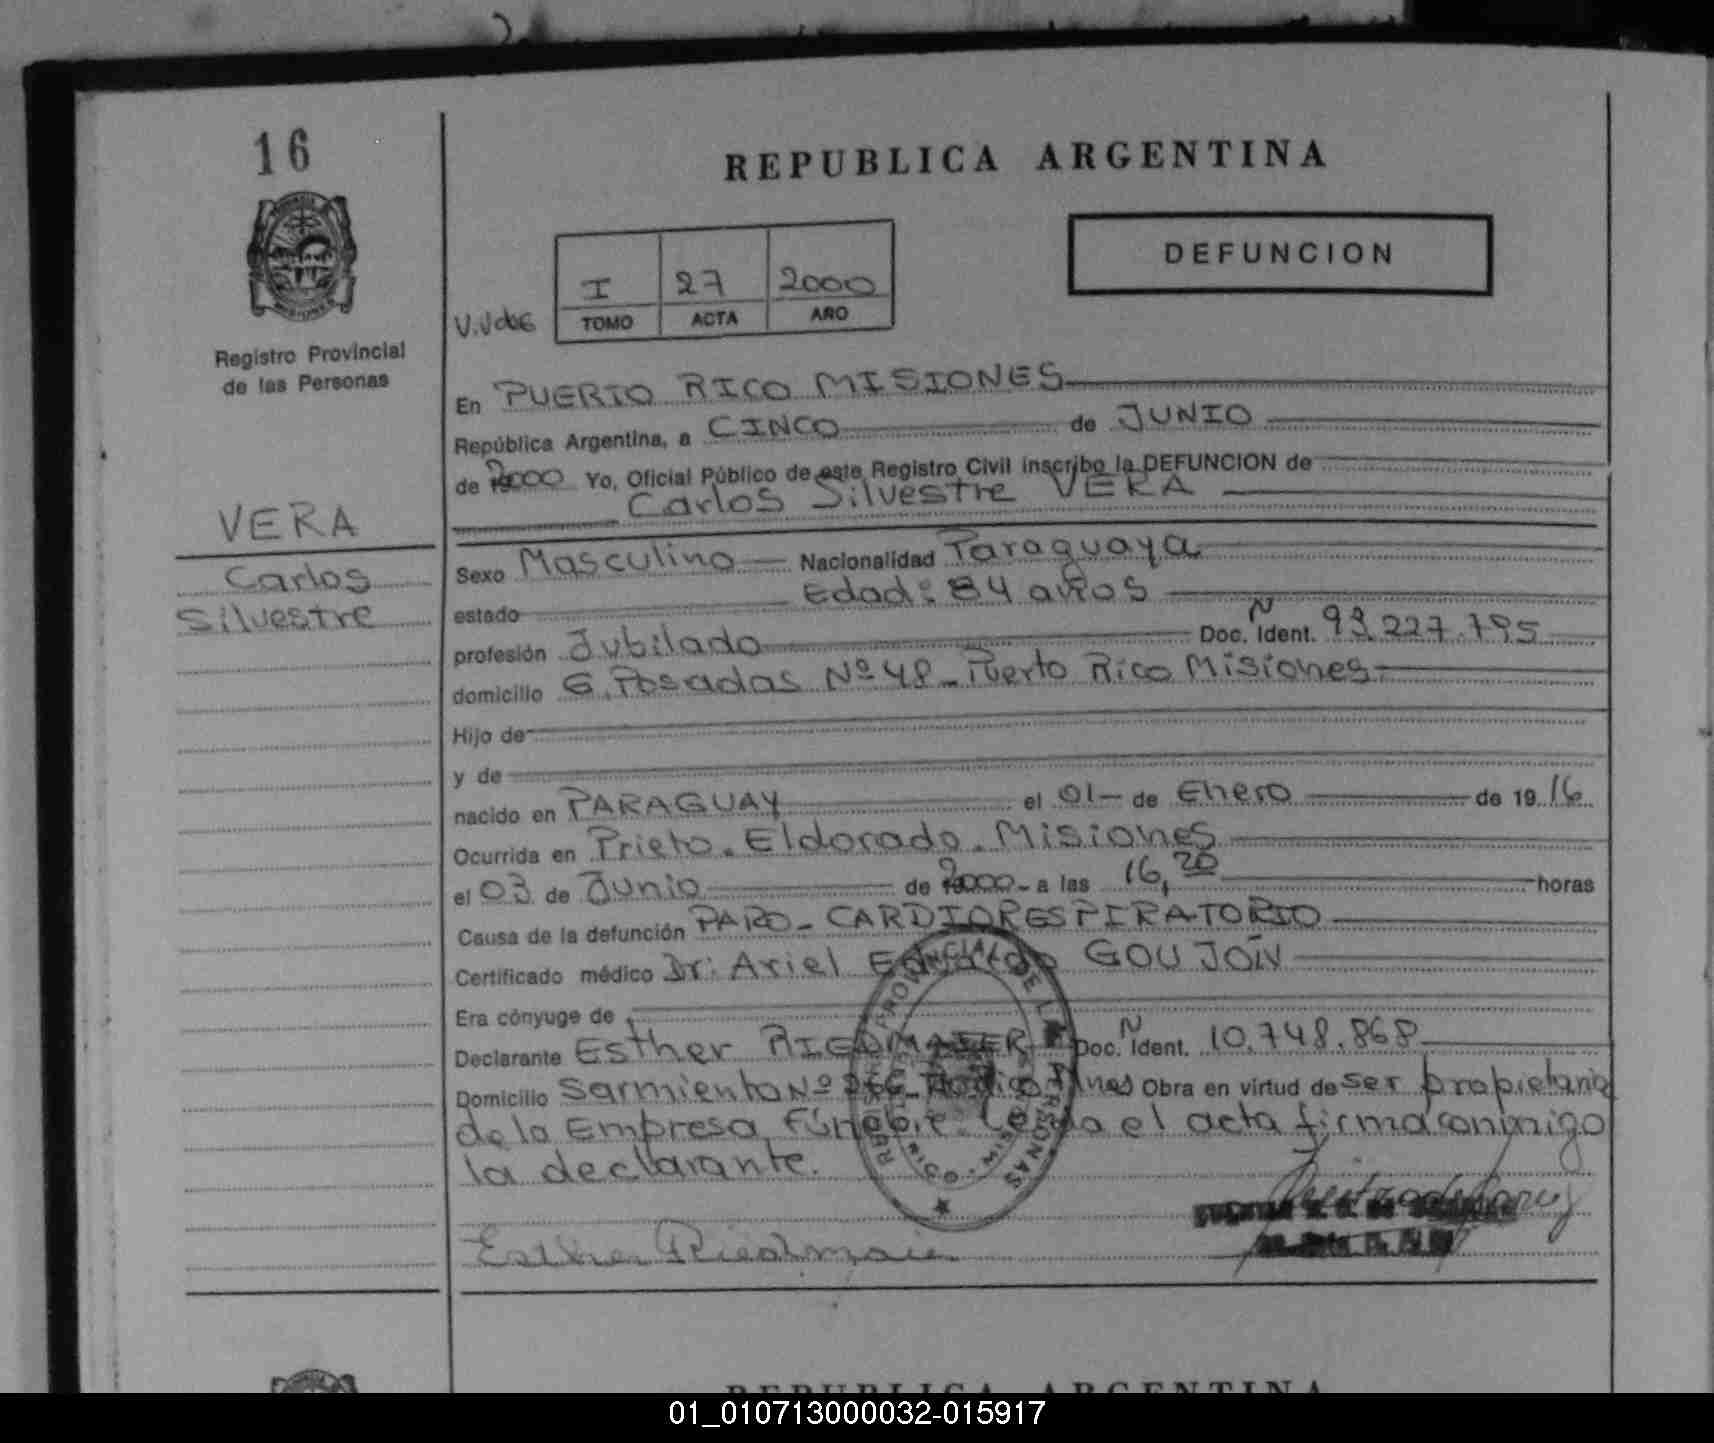 16
REPUBLICA ARGENTINA
DEFUNCION
I 27 2000
TOMO ACTA AÑO
Registro Provincial
de las Personas
En PUERTO RICO MISIONES
República Argentina, a CINCO de JUNIO
de 2000 Yo, Oficial Público de este Registro Civil inscribo la DEFUNCION de
Carlos Silvestre VERA
VERA
Carlos
Silvestre
Sexo Masculino Nacionalidad Paraguaya
estado Edad: 84 años
profesión Jubilado Doc. Ident. N 93.227.795
domicilio G. Posadas Nº 48 - Puerto Rico Misiones
Hijo de
y de
nacido en PARAGUAY el 01 de Enero de 1916
Ocurrida en Prieto. Eldorado. Misiones
el 03 de Junio de 2000 - a las 16,20 horas
Causa de la defunción PARO - CARDIORESPIRATORIO
Certificado médico Dr. Ariel GOUJON
Era cónyuge de
Declarante Esther RIEDMAIER Doc. Ident. N 10.748.868
Domicilio Sarmiento Nº Obra en virtud de ser propietaria
de la Empresa Fúnebre. Leída el acta firma conmigo
la declarante.
REGISTRO PROVINCIAL DE LAS PERSONAS
Esther Riedmaier
REPUBLICA ARGENTINA
01_010713000032-015917